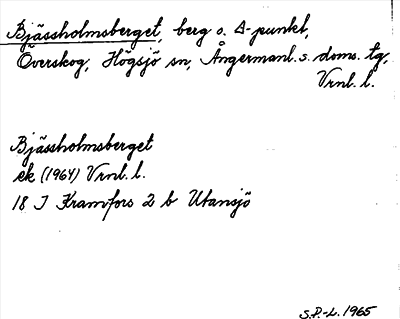 Bjässholmsberget, berg o. Δ-punkt,
Överskog, Högsjö sn, Ångermanl. s. doms. tg,
Vrnl. l.
Bjässholmsberget
ek (1964) Vrnl. l.
18 J Kramfors 2 b Utansjö
S.P.-L. 1965